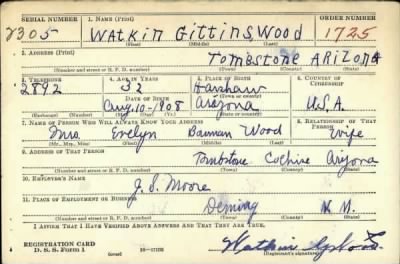 SERIAL NUMBER 1. NAME (Print) ORDER NUMBER
2305 WATKIN GITTINS WOOD 1725
(First) (Middle) (Last)
2. ADDRESS (Print)
TOMBSTONE ARIZONA
(Number and street or R. F. D. number) (Town) (County) (State)
3. TELEPHONE 4. AGE IN YEARS 5. PLACE OF BIRTH 6. COUNTRY OF CITIZENSHIP
2892 32 Harshaw
DATE OF BIRTH
Aug. 10-1908 Arizona U.S.A.
(Exchange) (Number) (Mo.) (Day) (Yr.) (State or country)
7. NAME OF PERSON WHO WILL ALWAYS KNOW YOUR ADDRESS 8. RELATIONSHIP OF THAT PERSON
Mrs. Evelyn Bauman Wood Wife
(Mr., Mrs., Miss) (First) (Middle) (Last)
9. ADDRESS OF THAT PERSON
Tombstone Cochise Arizona
(Number and street or R. F. D. number) (Town) (County) (State)
10. EMPLOYER'S NAME
J. S. Moore
11. PLACE OF EMPLOYMENT OR BUSINESS
Deming N.M.
(Number and street or R. F. D. number) (Town) (County) (State)
I AFFIRM THAT I HAVE VERIFIED ABOVE ANSWERS AND THAT THEY ARE TRUE.
REGISTRATION CARD
D. S. S. Form 1 (over) Watkin
(Registrant's signature)